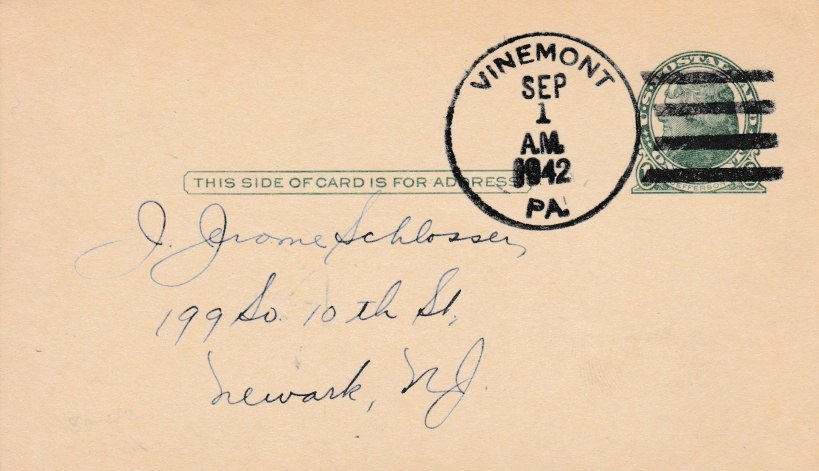 VINEMONT
SEP
1
A.M.
1942
PA.
U.S. POSTAL CARD
JEFFERSON
THIS SIDE OF CARD IS FOR ADDRESS
J. Jerome Schlosser,
199 So. 10th St,
Newark, N.J.